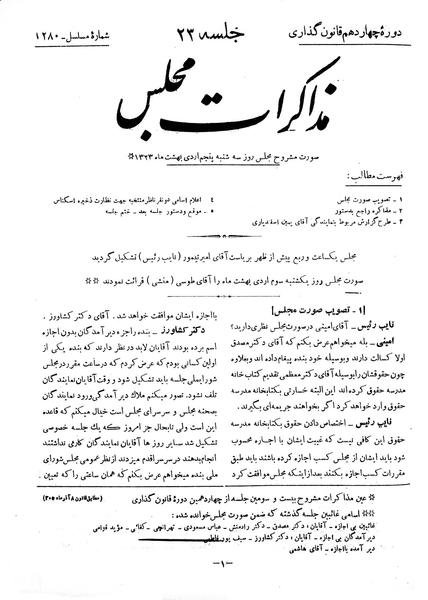 دورهٔ چهاردهم قانون گذاری
جلسه ۲۳
شمارهٔ مسلسل - ۱۲۸۰
مذاکرات مجلس
صورت مشروح مجلس روز سه شنبه پنجم اردی بهشت ماه ۱۳۲۳
فهرست مطالب:
۱ - تصویب صورت مجلس
۲ - مذاکره راجع بدستور
۳ - طرح گزارش مربوط بنمایندگی آقای یمین اسفندیاری
۴ - اعلام اسامی دو نفر ناظر منتخبه جهت نظارت ذخیره اسکناس
۵ - موقع و دستور جلسه بعد - ختم جلسه
مجلس یکساعت و ربع پیش از ظهر بریاست آقای امیر تیمور (نایب رئیس) تشکیل گردید
صورت مجلس روز یکشنبه سوم اردی بهشت ماه را آقای طوسی (منشی) قرائت نمودند **
[۱ - تصویب صورت مجلس]
نایب رئیس - آقای امینی در صورت مجلس نظری دارید؟
امینی - بله میخواهم عرض بکنم که آقای دکتر مصدق
اولا کسالت دارند وبوسیله خود بنده پیغام داده اند و بعلاوه
چون حقوقشان را بوسیله آقای دکتر معظمی تقدیم کتاب خانه
مدرسه حقوق کرده اند این البته خسارتی بکتابخانه مدرسه
حقوق وارد خواهد کرد اگر بخواهند جریمه ای بگیرند.
نایب رئیس - اختصاص دادن حقوق بکتابخانه مدرسه
حقوق این کافی نیست که غیبت ایشان با اجازه محسوب
شود باید ایشان از مجلس کسب اجازه کرده باشند باید طبق
مقررات کسب اجازه بکنند بعد از اینکه مجلس موافقت کرد
با اجازه ایشان موافقت خواهد شد. آقای دکتر کشاورز.
دکتر کشاورز - بنده را جزء دیر آمدگان بدون اجازه
اسم برده بودند آقایان لابد در نظر دارند که بنده یکی از
اولین کسانی بودم که عرض کردم که در ساعت مقرر در مجلس
شورای ملی جلسه باید تشکیل شود و وقت آقایان نمایندگان
تلف نشود. تصور میکنم ملاک دیر آمدگی ورود نمایندگان
بصحنه مجلس و سرسرای مجلس است خیال میکنم که قاعده
این است ولی تابحال جز امروز که یک جلسه خصوصی
تشکیل شد سایر روز ها آقایان نمایندگان کاری نداشتند
انجام بدهند در سرسرا قدم میزدند از نظر عمومی مجلس شورای
ملی بنده میخواهم عرض بکنم که همان ساعتی را که تعیین
* عین مذاکرات مشروح بیست و سومین جلسه از چهاردهمین دورهٔ قانون گذاری
** اسامی غائبین جلسه گذشته که ضمن صورت مجلس خوانده شده:
غائبین بی اجازه - آقایان: دکتر مصدق - دکتر رادمنش - عباس مسعودی - تهرانچی - کفائی - مؤید قوامی
دیر آمدگان بی اجازه - آقایان: دکتر کشاورز - سیف پور فاطمی
دیر آمده با اجازه - آقای هاشمی
-۱-